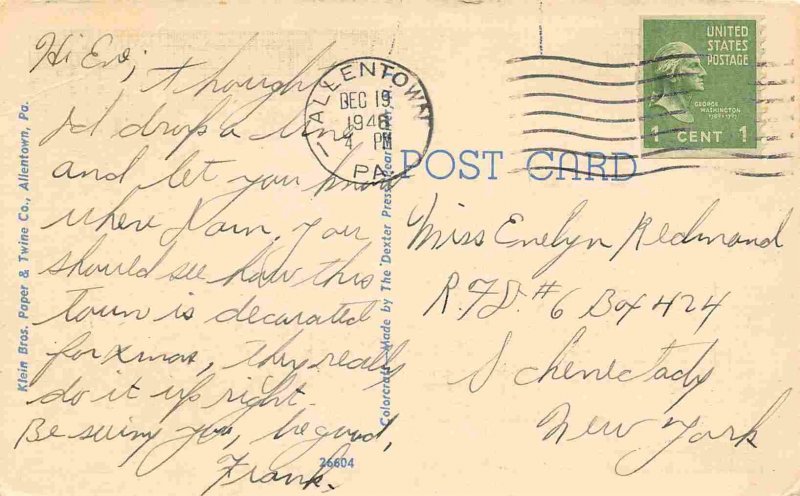 Hi Eve,
I thought
I'd drop a line
and let you know
where I am. You
should see how this
town is decorated
for Xmas, they really
do it up right.
Be seeing you, be good,
Frank.
Klein Bros. Paper & Twine Co., Allentown, Pa.
ALLENTOWN
DEC 19
1946
4 PM
PA.
26604
Colorcraft Made by The Dexter Press, Pearl
POST CARD
UNITED
STATES
POSTAGE
GEORGE
WASHINGTON
1 CENT 1
Miss Evelyn Redmond
R.F.D. #6 Box 424
Schenectady
New York